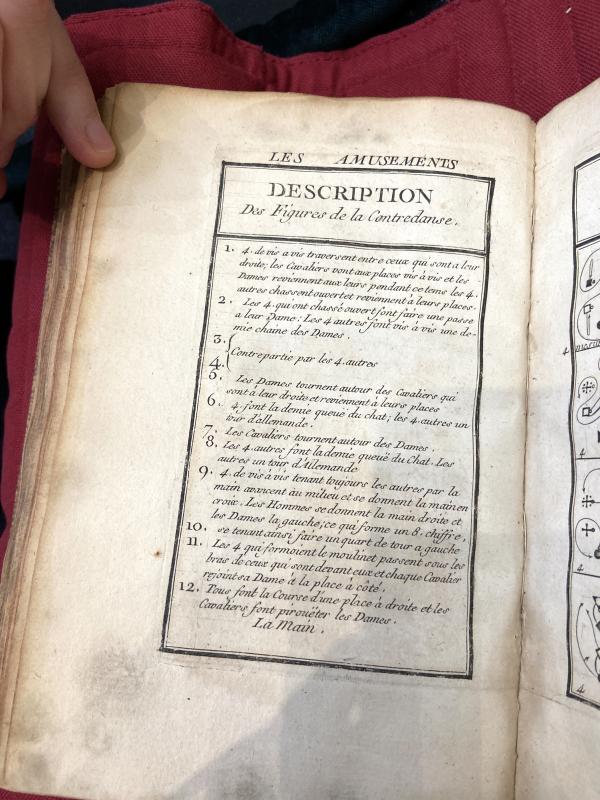 LES AMUSEMENTS
DESCRIPTION
Des Figures de la Contredanse.
1. 4. de vis a vis traversent entre ceux qui sont a leur
droite; les Cavaliers vont aux places vis à vis et les
Dames reviennent aux leurs pendant ce tems les 4.
autres chassent ouvert et reviennent à leurs places.
2. Les 4. qui ont chassé ouvert font faire une passe
a leur Dame: Les 4 autres font vis à vis une de-
mie chaine des Dames.
3.
Contrepartie par les 4. autres
4.
5. Les Dames tournent autour des Cavaliers qui
sont à leur droite et reviennent à leurs places
6. 4. font la demie queuë du chat; les 4. autres un
tour d'allemande.
7. Les Cavaliers tournent autour des Dames.
8. Les 4. autres font la demie queuë du Chat. Les
autres un tour d'Allemande
9. 4. de vis à vis tenant toujours les autres par la
main avancent au milieu et se donnent la main en
croix. Les Hommes se donnent la main droite et
les Dames la gauche; ce qui forme un 8. chiffre,
10. se tenant ainsi faire un quart de tour a gauche
11. Les 4 qui formoient le moulinet passent sous les
bras de ceux qui sont devant eux et chaque Cavalier
rejoint sa Dame à la place à côté.
12. Tous font la Course d'une place à droite et les
Cavaliers font pirouëter les Dames.
La Main.
4
4
4
4